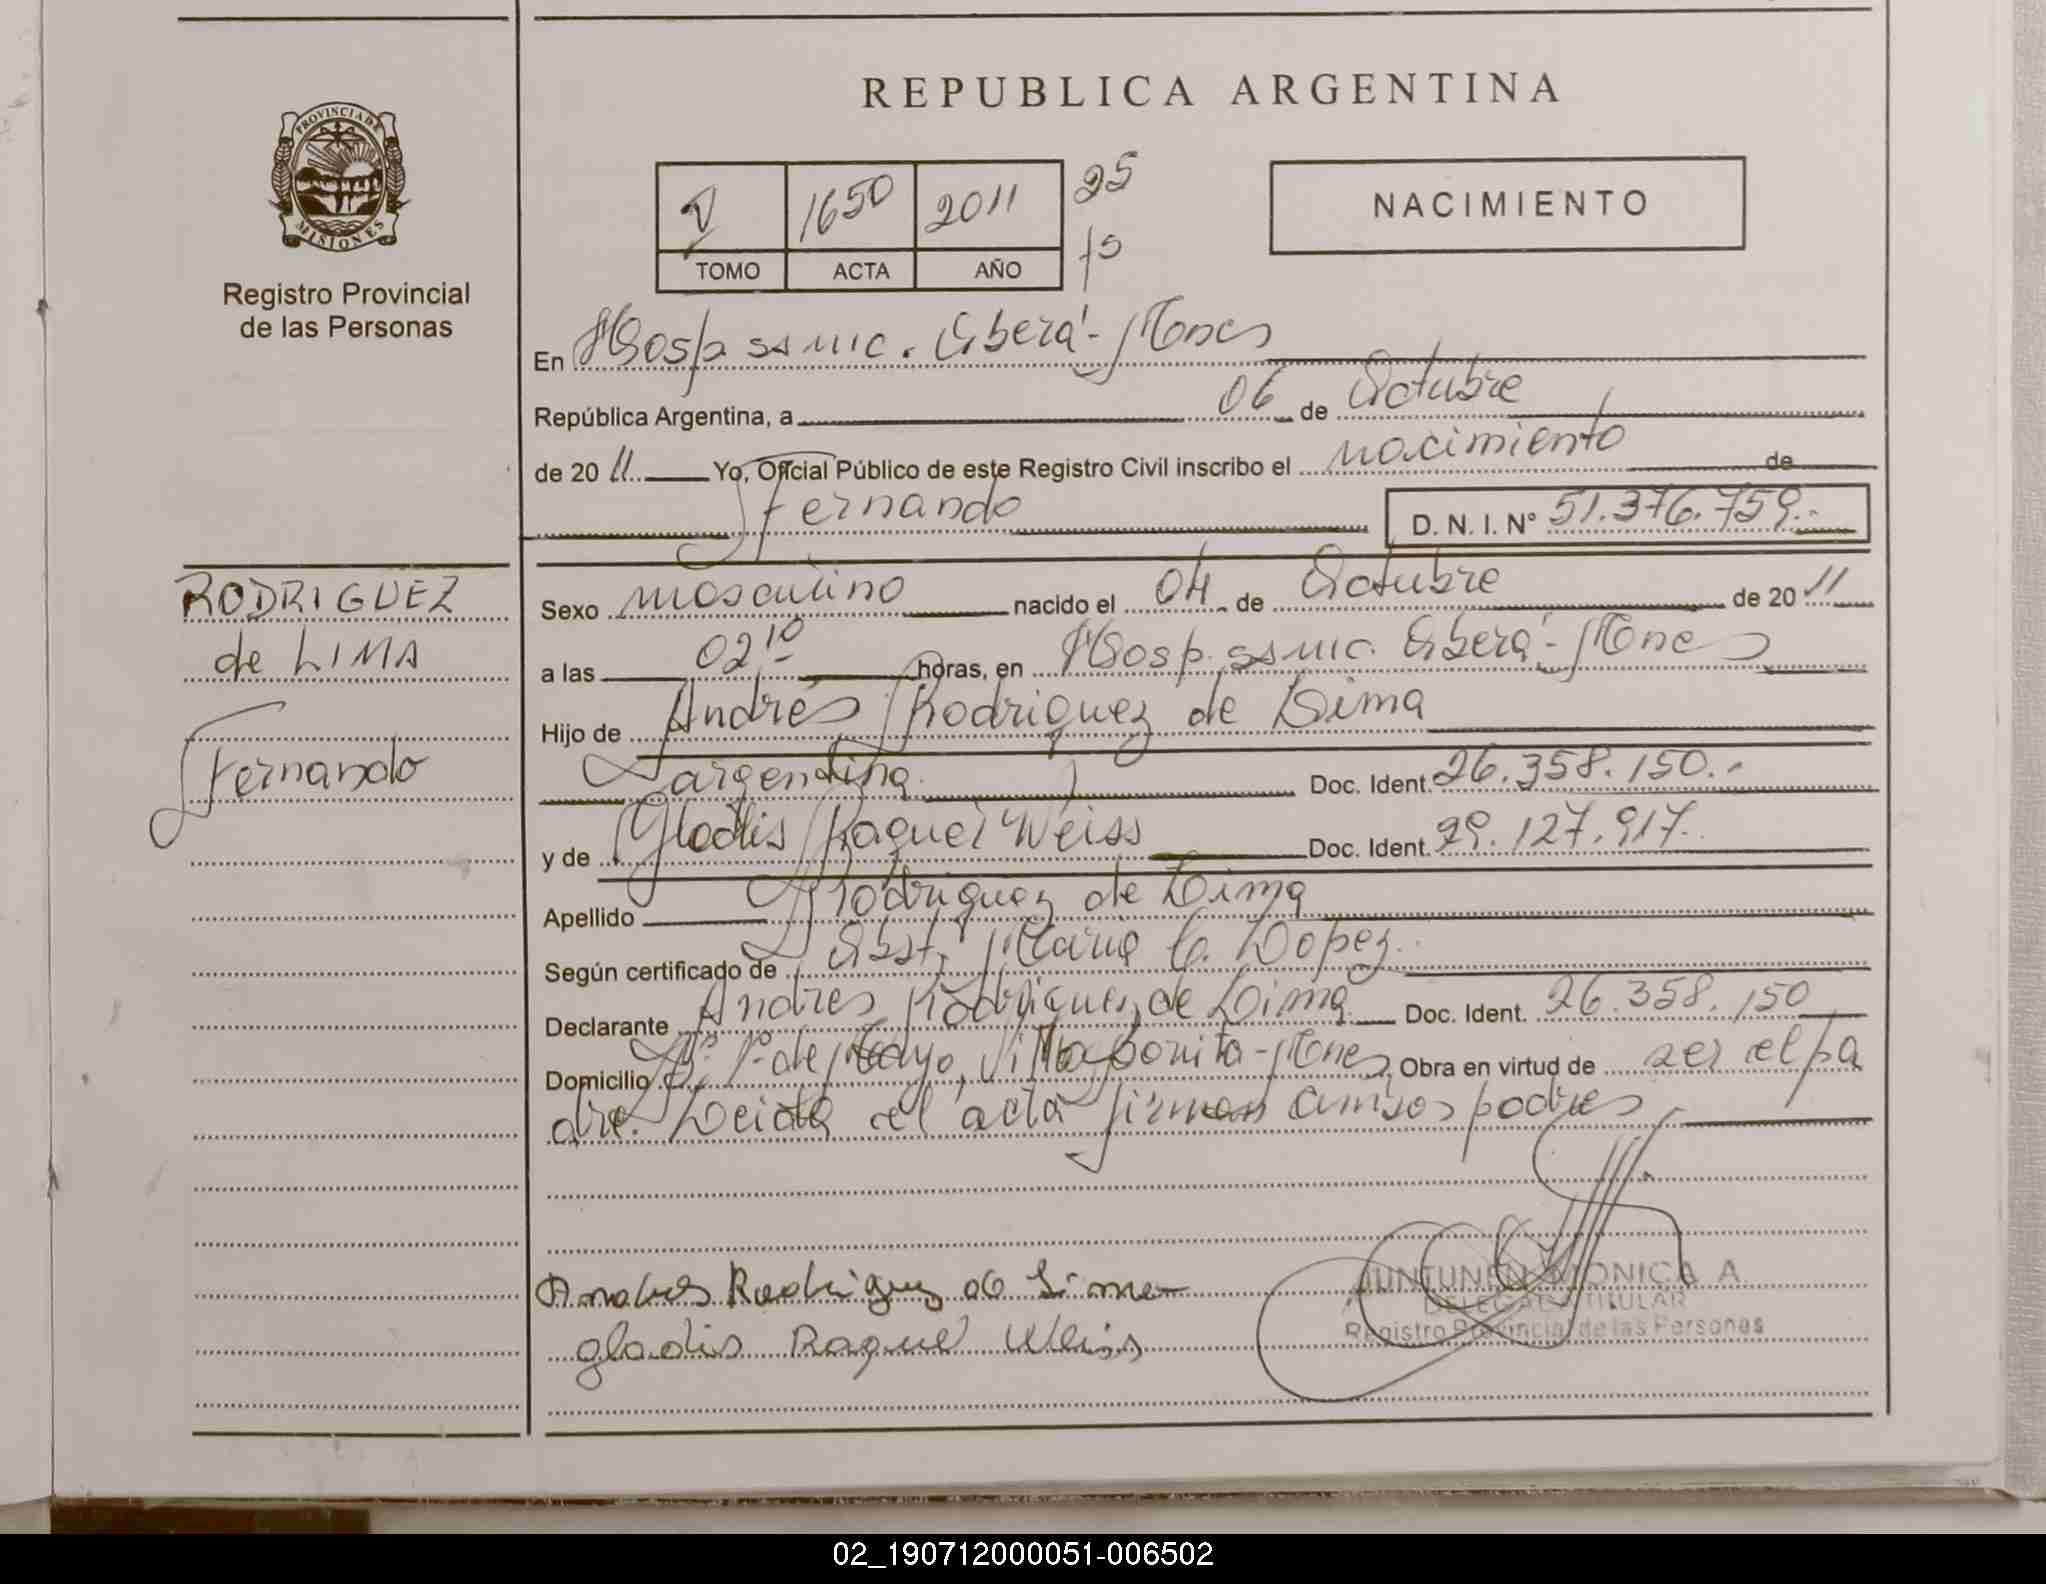 REPUBLICA ARGENTINA
PROVINCIA DE
MISIONES
Registro Provincial
de las Personas
V 1650 2011 25
TOMO ACTA AÑO
NACIMIENTO
En Hosp. ssmic. Oberá - Mnes
República Argentina, a 06 de Octubre
de 20 11 Yo, Oficial Público de este Registro Civil inscribo el nacimiento de
Fernando D. N. I. Nº 51.376.759.-
RODRIGUEZ
de LIMA
Fernando
Sexo masculino nacido el 04 de Octubre de 20 11
a las 02 10 horas, en Hosp. ssmic. Oberá - Mnes
Hijo de Andrés Rodriguez de Lima
argentina Doc. Ident. 26.358.150.-
y de Gladis Raquel Weiss Doc. Ident. 29.127.917.
Apellido Rodriguez de Lima
Según certificado de Obst. Maria C. Lopez.
Declarante Andrés Rodriguez de Lima Doc. Ident. 26.358.150
Domicilio 1º de Mayo, Villa Bonita - Mnes Obra en virtud de ser el pa
dre. Leida el acta firman ambos padres
Andres Rodriguez de Lima
gladis Raquel Weiss
MONICA A
DELEGADA TITULAR
Registro Provincial de las Personas
02_190712000051-006502